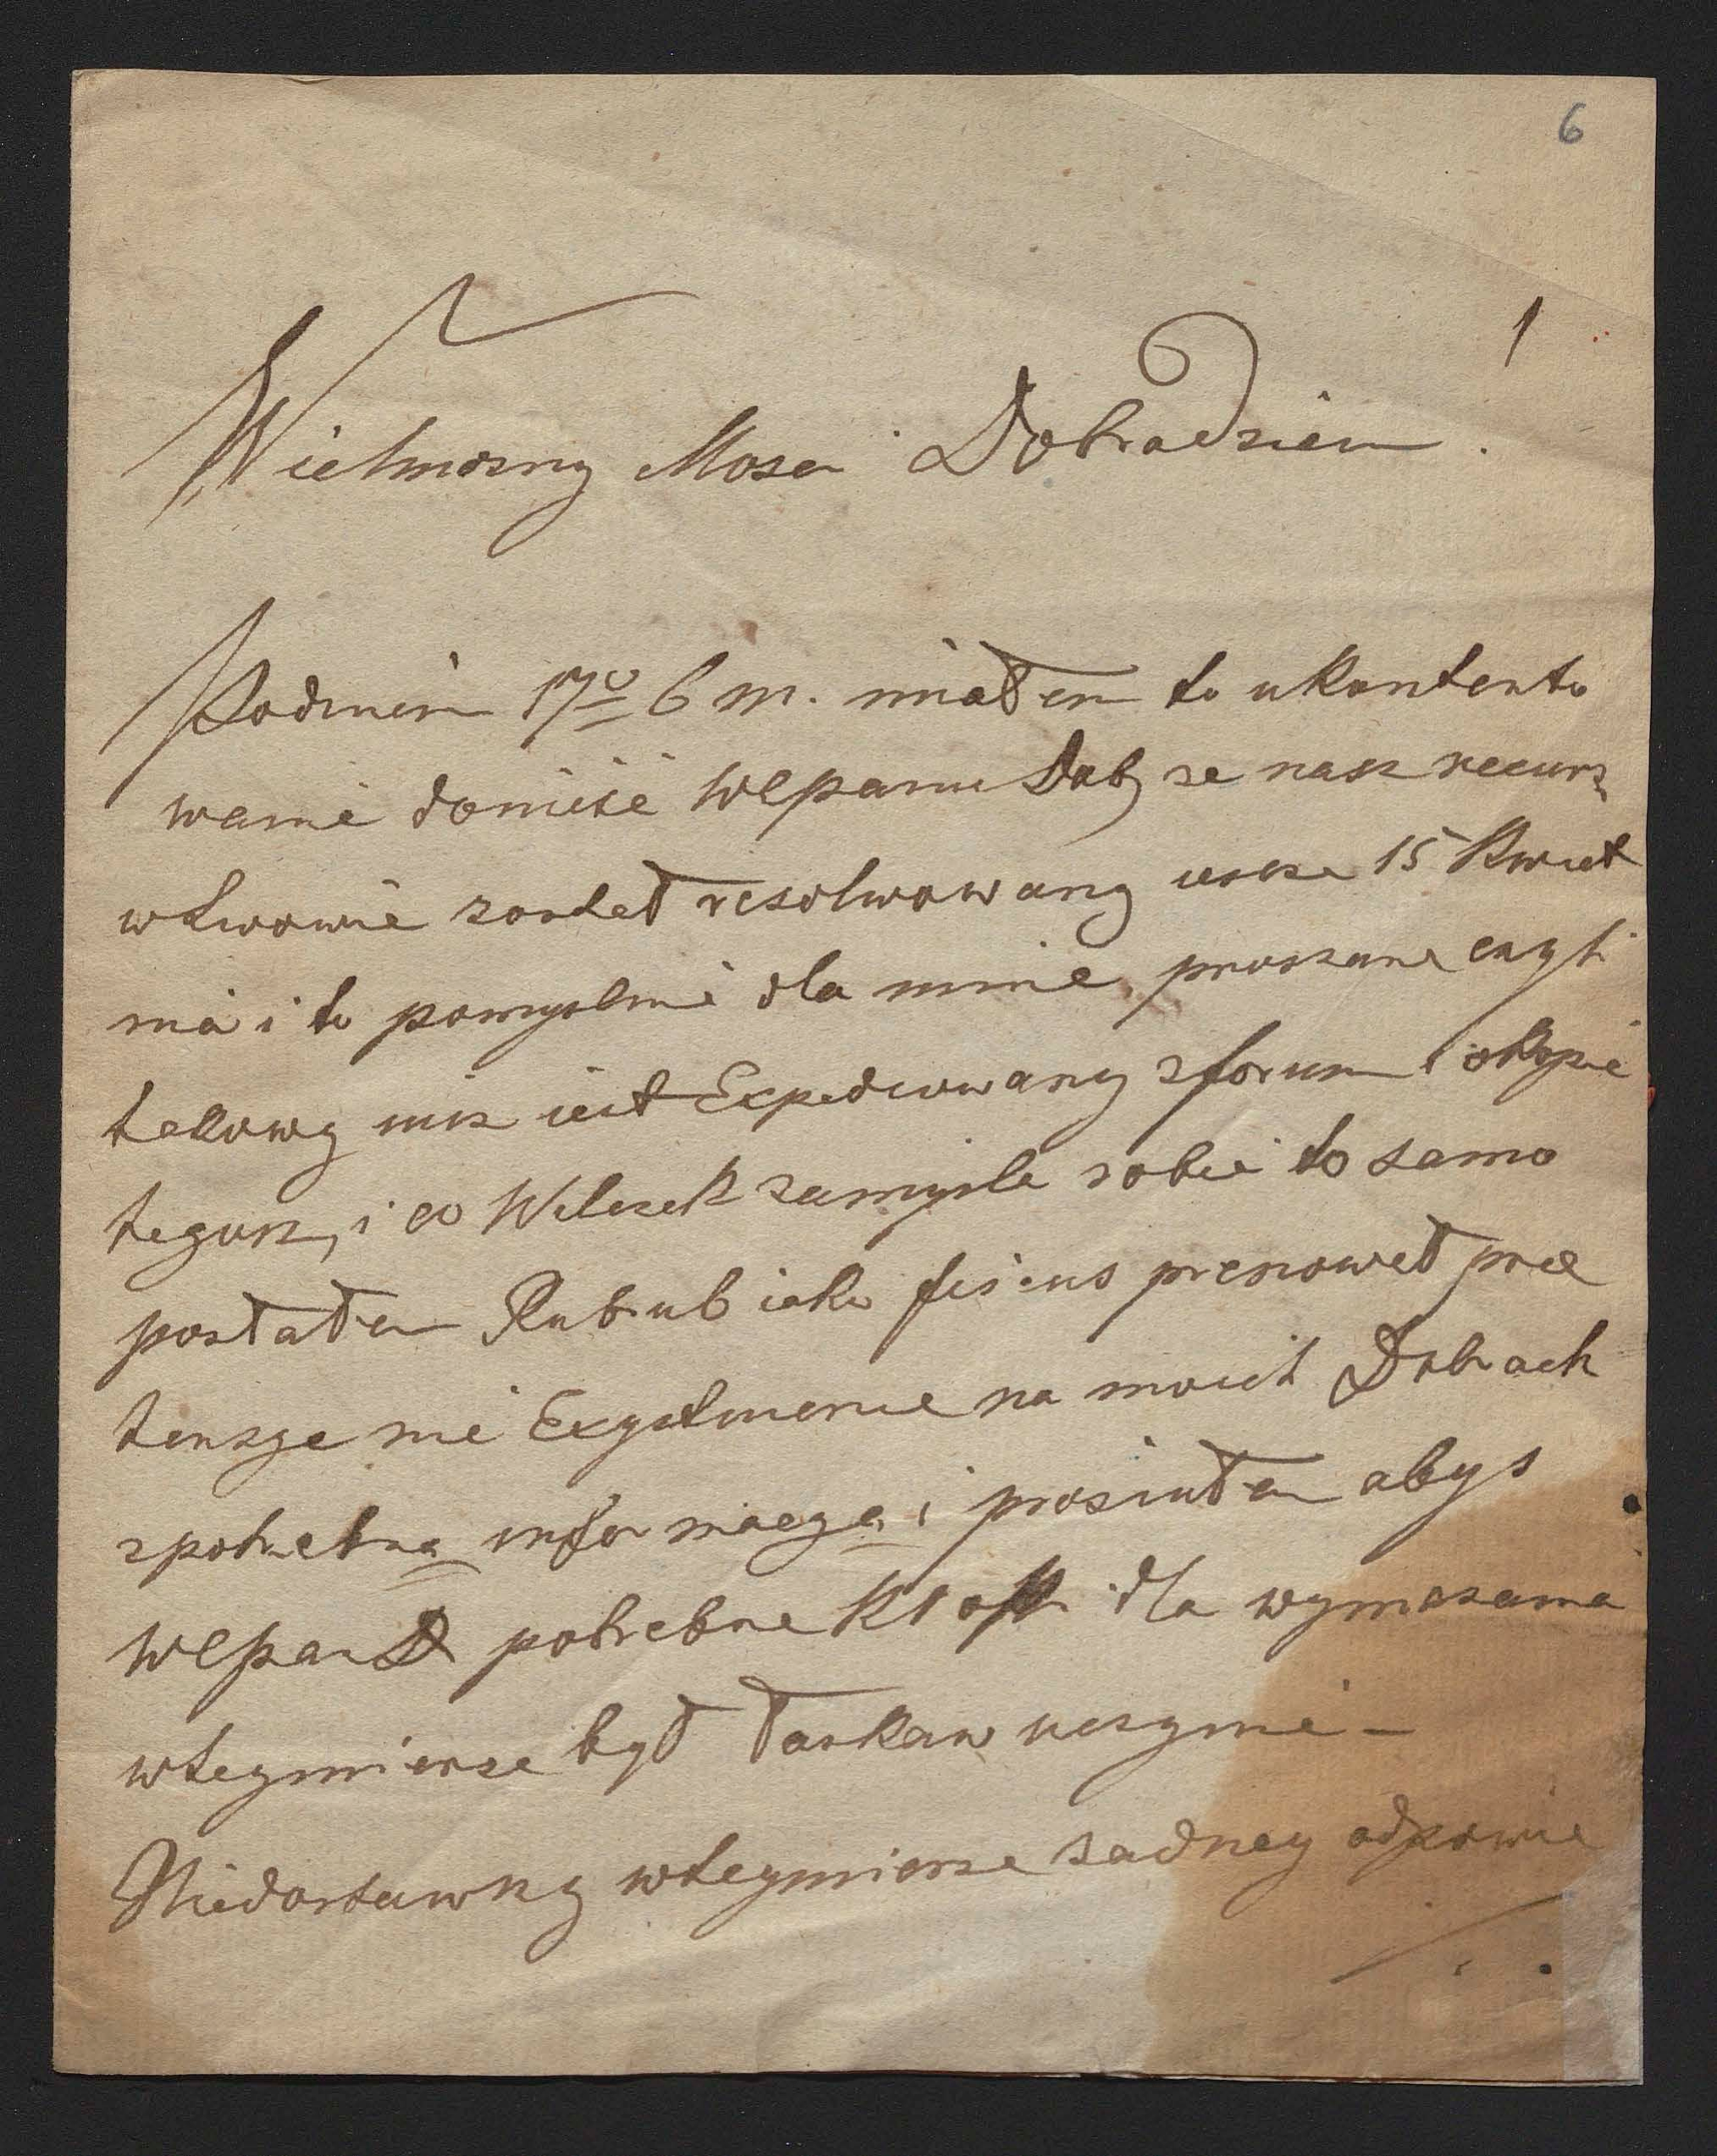 6
Wielmozny Mosci Dobrodzieiu !
Podniem 17º b m. miałem to ukontento
wanie donieść WPanu Dob ze nasz recurs
wLwowie został resolwowany iescze 15 Kwiet
nia i to pomyslnie dla mnie, proszone czyli
takowy iusz iest Expediowany zforum i okopie
tegusz, i co Wilczek zamysla sobie to samo
postałem Rubrub iako fiscus prenowet pre
tensye nie Exystuience na moich Dobrach
zpotrebną informacyą, i prosiułem abys
WPan D potrebne Kroki dla wymazania
wteymierze był łaskaw uczynić –
Niedostawszy wteymierze zadney odpowie